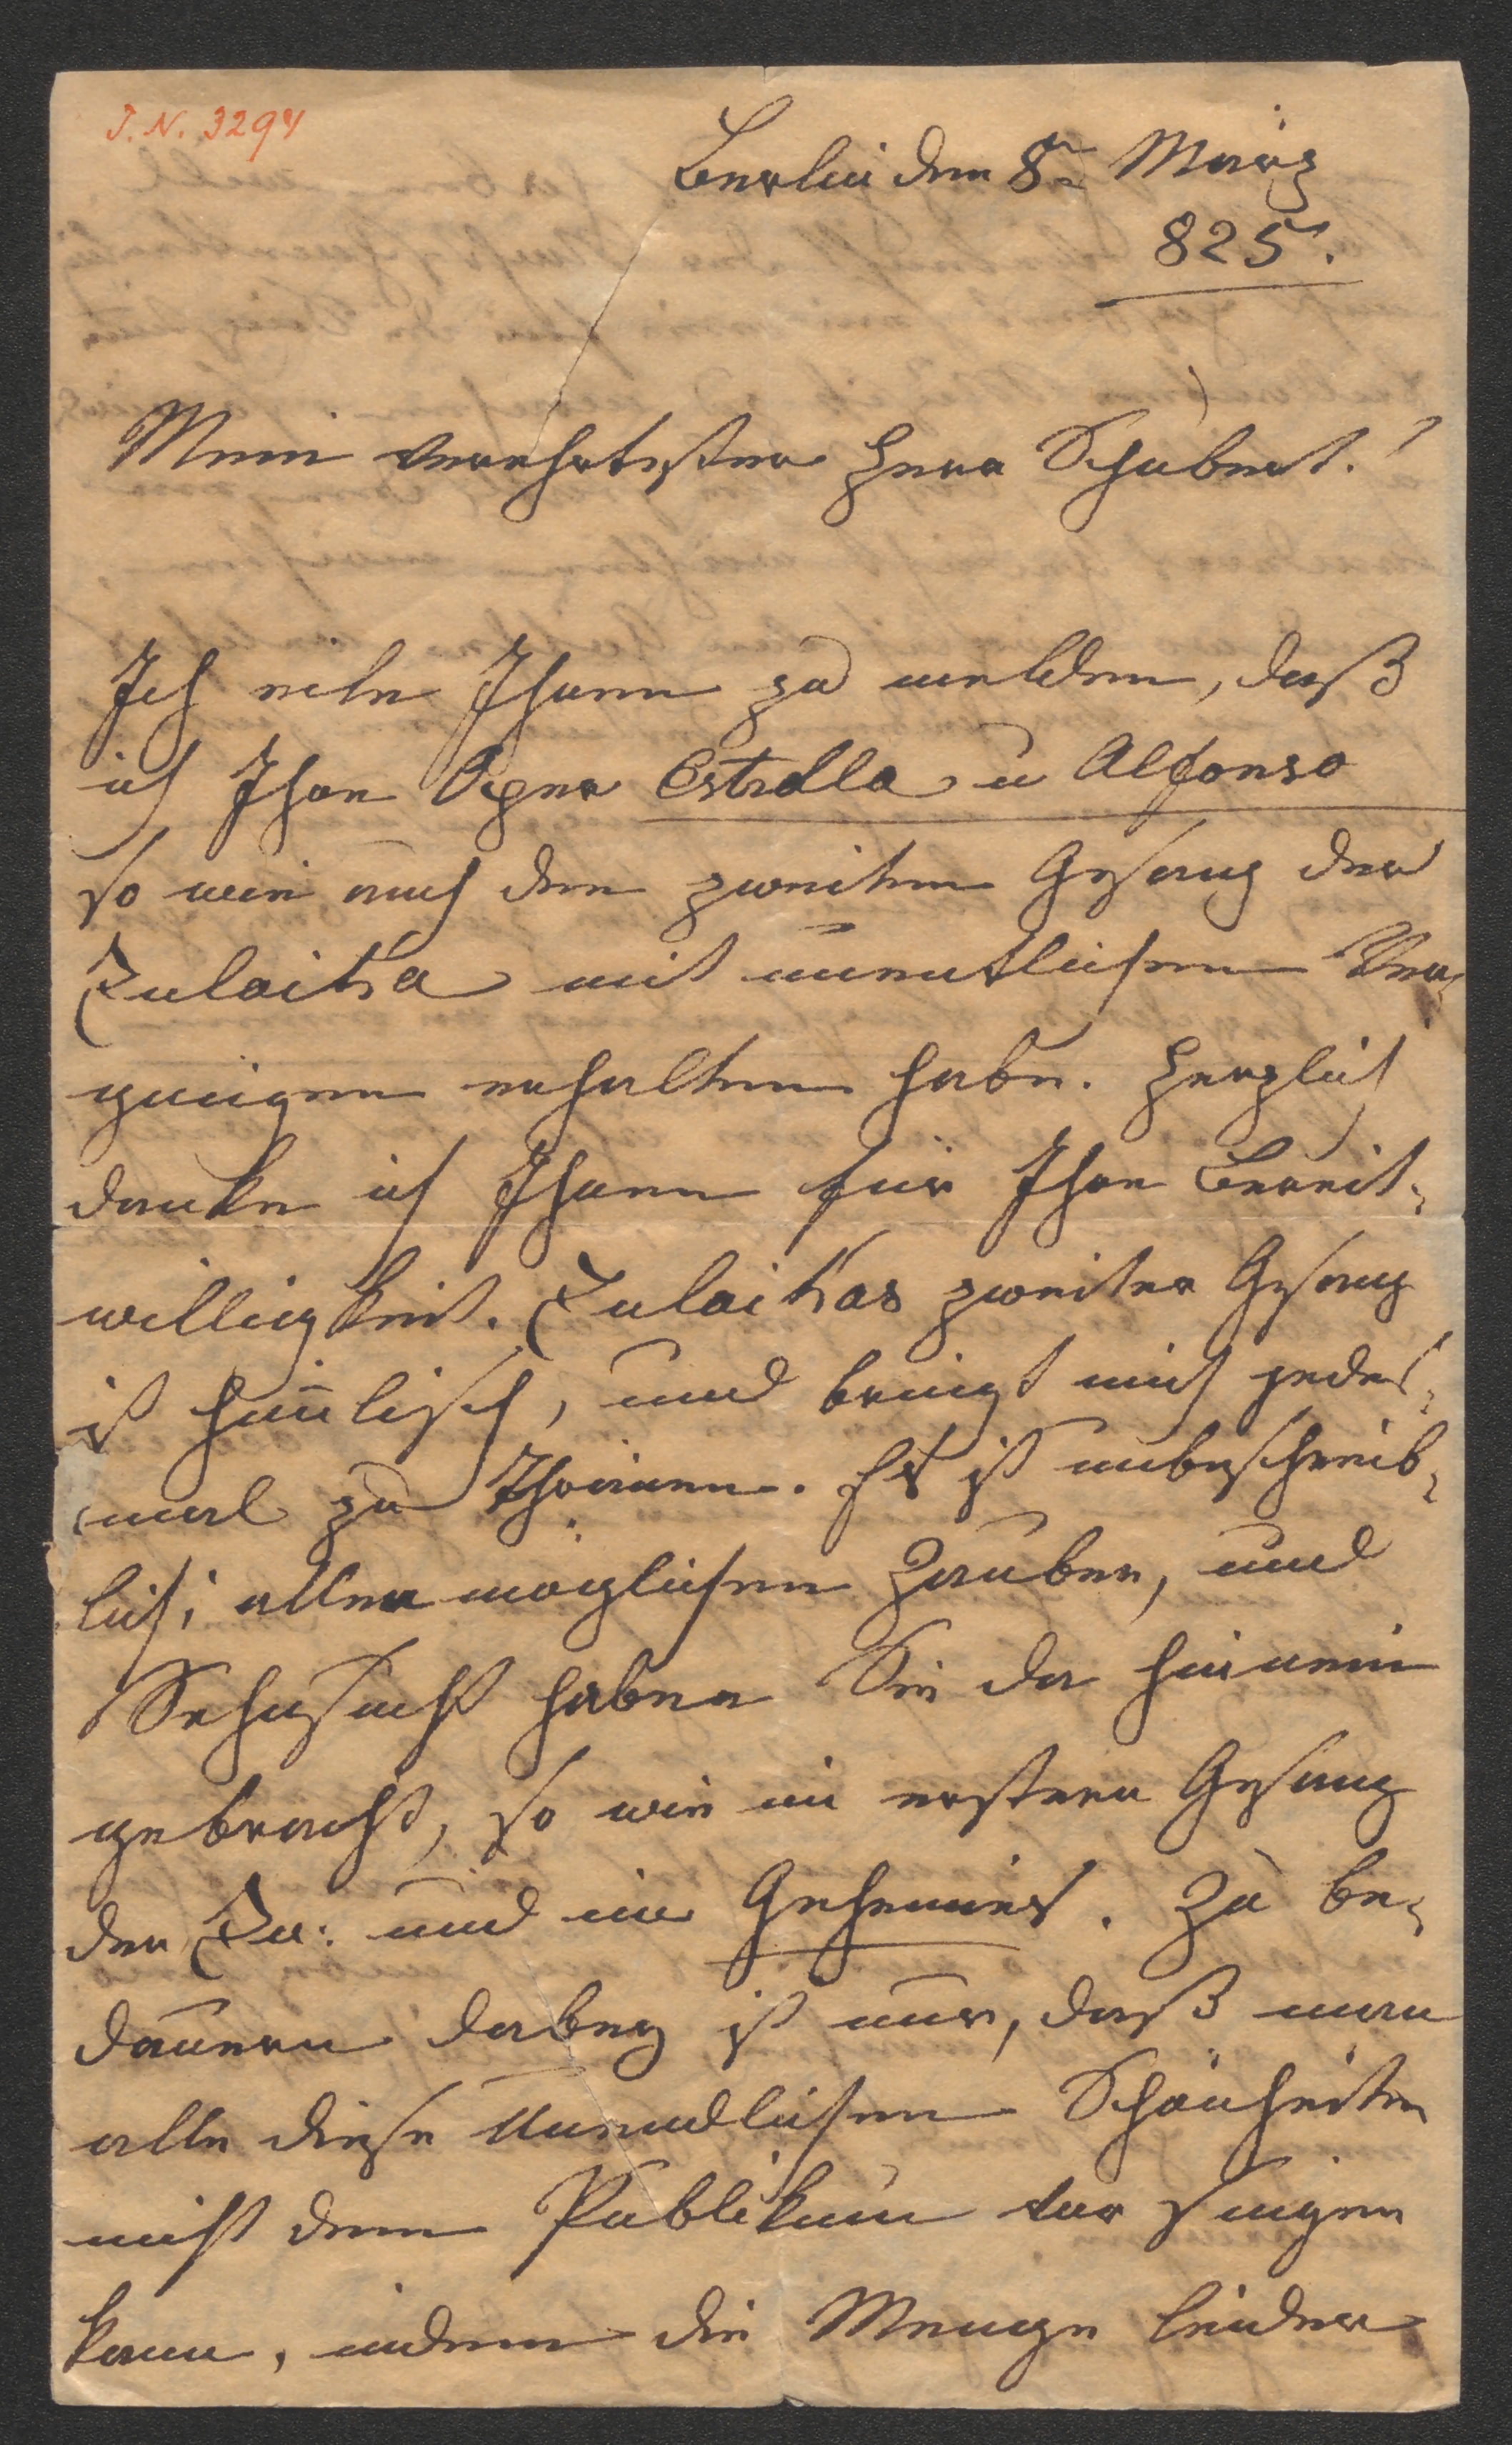 J. N. 3294
Berlin den 8n März
825.
Mein verehrtester Herr Schubert!
Ich eile Ihnen zu melden, daß
ich Ihre Oper Estrella u Alfonso
so wie auch den zweiten Gesang der
Zulaika mit unentlichen Ver-
gnügen erhalten habe. Herzlich
danke ich Ihnen für Ihre Bereit-
willigkeit. Zulaikas zweiter Gesang
ist him̅lisch, und bringt mich jedes-
mal zu Thränen. Es ist unbeschreib-
lich; allen möglichen Zauber, und
Sehnsucht haben Sie da hinein
gebracht, so wie im ersten Gesang
der Zu: und im Geheimes. Zu be-
dauern dabey ist nur, daß man
alle diese Unendlichen Schönheiten
nicht dem Publikum vor singen
kann, indem die Menge leider